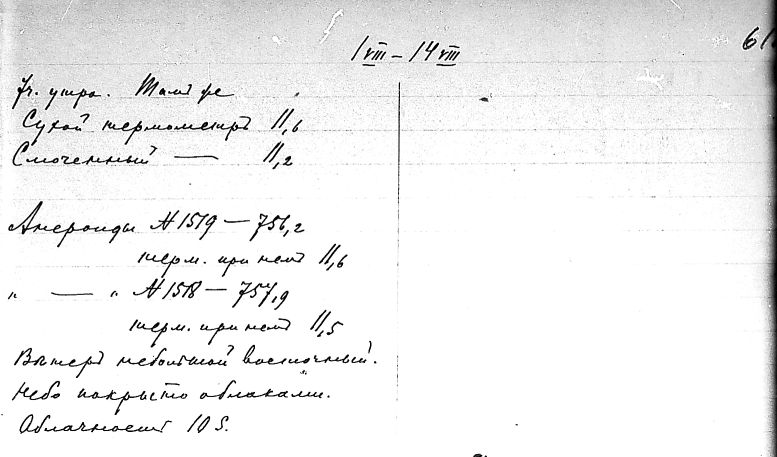 61
1 VIII – 14 VIII
7ч. утра. Тамъ же
Сухой термометръ 11,6
Смоченный — 11,2
Анероиды № 1519 — 756,2
терм. при немъ 11,6
„ — „ № 1518 — 757,9
терм. при немъ 11,5
Вѣтеръ небольшой восточный.
Небо покрыто облаками.
Облачность 10 S.